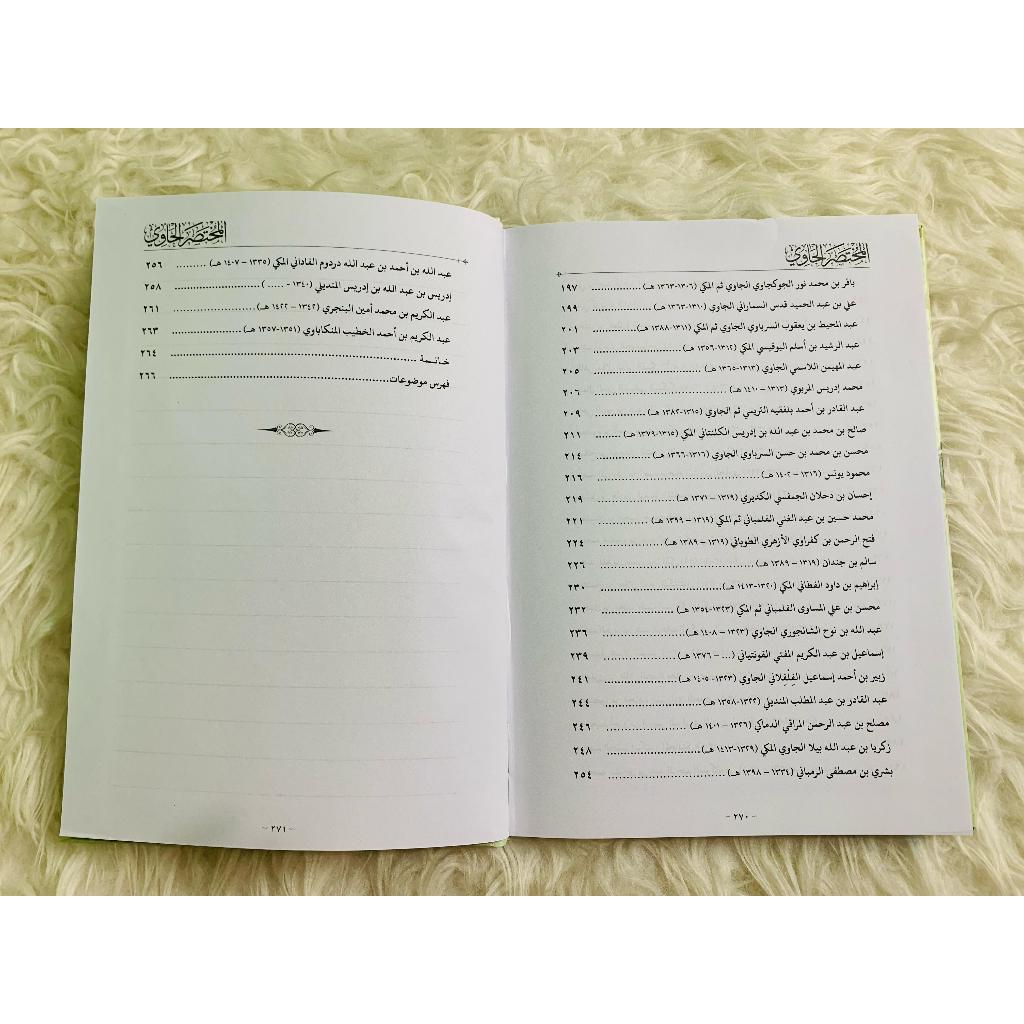 المختصر الحاوي
باقر بن محمد نور الجوكجاوي الجاوي ثم المكي (١٣٠٦-١٣٦٣ هـ) .......... ١٩٧
علي بن عبد الحميد قدس السماراني الجاوي (١٣١٠-١٣٦٣ هـ) .......... ١٩٩
عبد المحيط بن يعقوب السرباوي الجاوي ثم المكي (١٣١١-١٣٨٨ هـ) .......... ٢٠١
عبد الرشيد بن أسلم البوقيسي المكي (١٣١٢-١٣٥٦ هـ) .......... ٢٠٣
عبد المهيمن اللاسمي الجاوي (١٣١٣-١٣٦٥ هـ) .......... ٢٠٥
محمد إدريس المربوي (١٣١٣ – ١٤١٠ هـ) .......... ٢٠٦
عبد القادر بن أحمد بلفقيه التريمي ثم الجاوي (١٣١٥-١٣٨٢ هـ) .......... ٢٠٩
صالح بن محمد بن عبد الله بن إدريس الكلنتاني المكي (١٣١٥-١٣٧٩ هـ) .......... ٢١١
محسن بن محمد بن حسن السرباوي الجاوي (١٣١٦-١٣٦٦ هـ) .......... ٢١٤
محمود يونس (١٣١٦ – ١٤٠٢ هـ) .......... ٢١٦
إحسان بن دحلان الجمفسي الكديري (١٣١٩ – ١٣٧١ هـ) .......... ٢١٩
محمد حسين بن عبد الغني الفلمباني ثم المكي (١٣١٩ – ١٣٩٩ هـ) .......... ٢٢١
فتح الرحمن بن كفراوي الأزهري الطوباني (١٣١٩ – ١٣٨٩ هـ) .......... ٢٢٤
سالم بن جندان (١٣١٩ – ١٣٨٩ هـ) .......... ٢٢٦
إبراهيم بن داود الفطاني المكي (١٣٢٠-١٤١٣ هـ) .......... ٢٣٠
محسن بن علي المساوى الفلمباني ثم المكي (١٣٢٣-١٣٥٤ هـ) .......... ٢٣٢
عبد الله بن نوح الشانجوري الجاوي (١٣٢٣ – ١٤٠٨ هـ) .......... ٢٣٦
إسماعيل بن عبد الكريم المفتي الفونتياني (... – ١٣٧٦ هـ) .......... ٢٣٩
زبير بن أحمد إسماعيل الفِلْفِلاني الجاوي (١٣٢٣-١٤٠٥ هـ) .......... ٢٤١
عبد القادر بن عبد المطلب المنديلي (١٣٢٢-١٣٥٨ هـ) .......... ٢٤٤
مصلح بن عبد الرحمن المراقي الدماكي (١٣٢٦ – ١٤٠١ هـ) .......... ٢٤٦
زكريا بن عبد الله بيلا الجاوي المكي (١٣٢٩-١٤١٣ هـ) .......... ٢٤٨
بشري بن مصطفى الرمباني (١٣٣٤ – ١٣٩٨ هـ) .......... ٢٥٤
- ٢٧٠ -
المختصر الحاوي
عبد الله بن أحمد بن عبد الله دردوم الفاداني المكي (١٣٣٥ – ١٤٠٧ هـ) .......... ٢٥٦
إدريس بن عبد الله بن إدريس المنديلي (١٣٤٠ - ..... ) .......... ٢٥٨
عبد الكريم بن محمد أمين البنجري (١٣٤٢ – ١٤٢٢ هـ) .......... ٢٦١
عبد الكريم بن أحمد الخطيب المنكاباوي (١٣٥١-١٣٥٧ هـ) .......... ٢٦٣
خاتمة .......... ٢٦٤
فهرس موضوعات .......... ٢٦٦
- ٢٧١ -